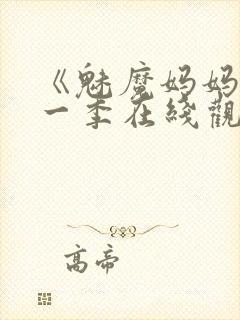 《魅魔妈妈
一季在线觀
高帝